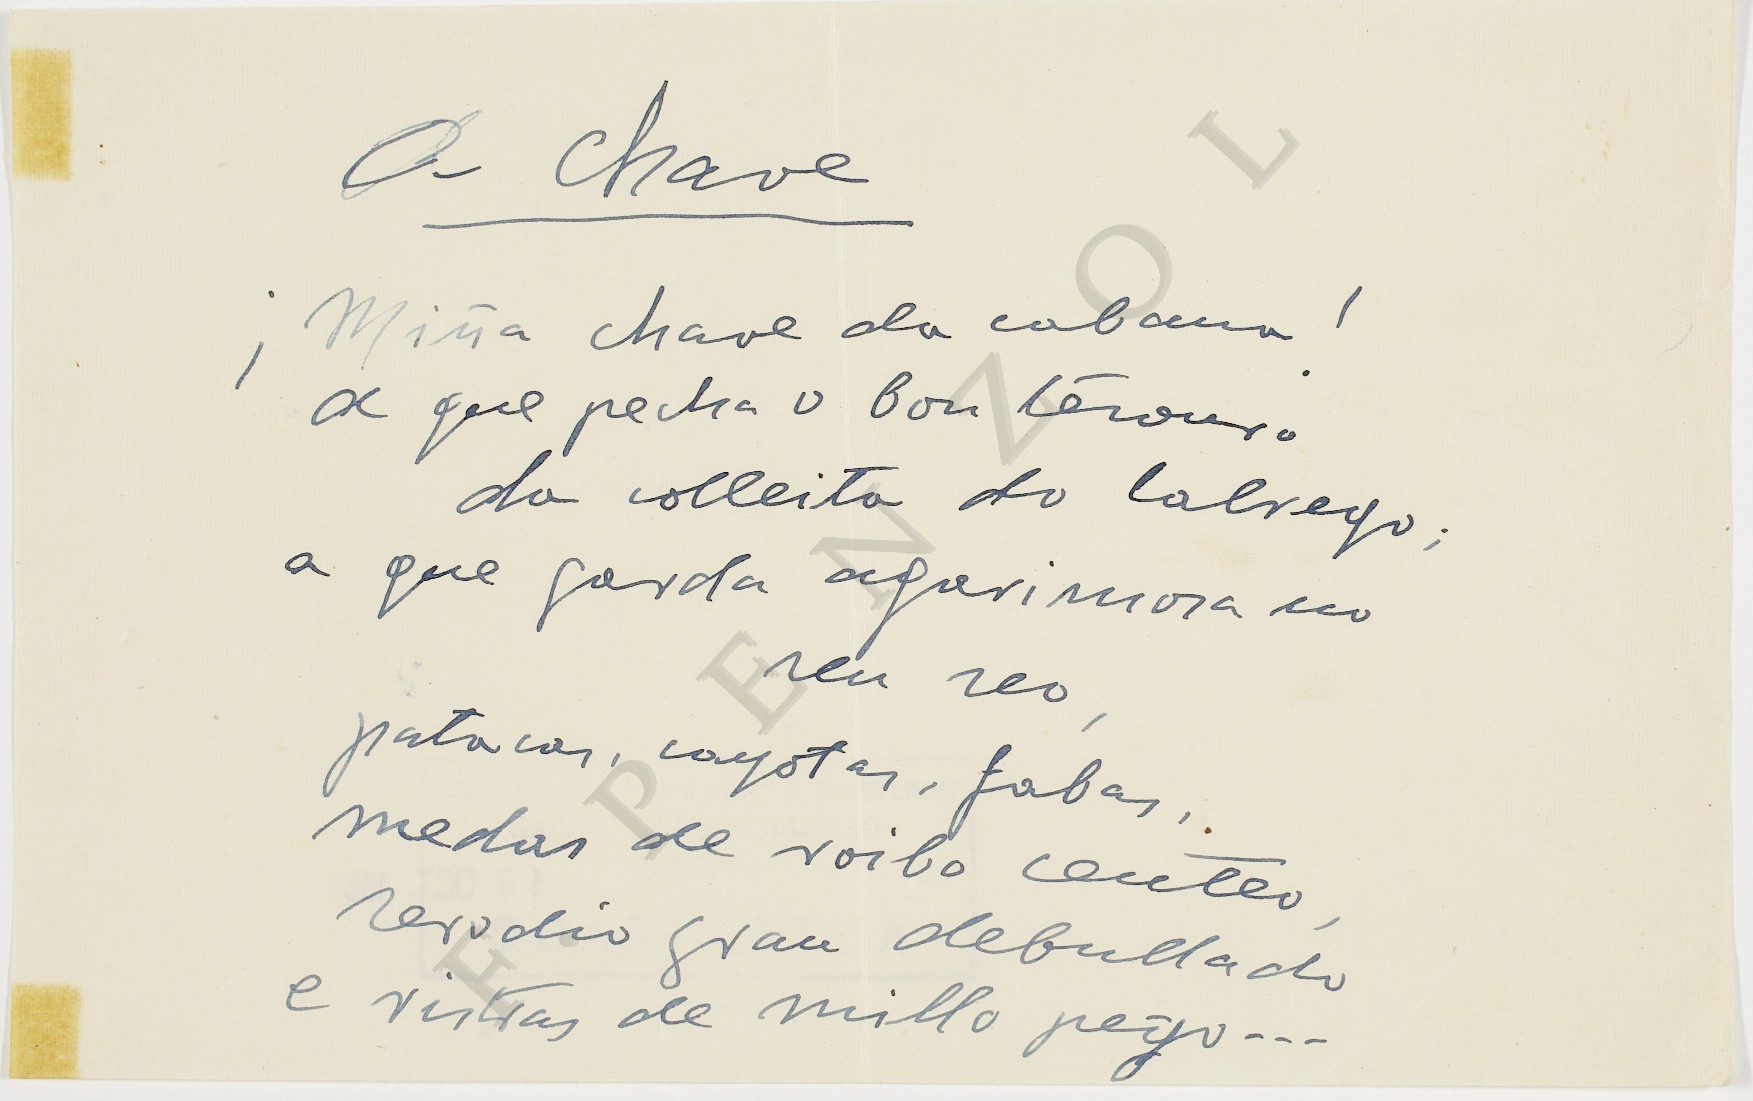 A chave
¡Miña chave da cabana!
a que pecha o bon tesouro
da colleita do labrego;
a que garda agarimosa no
seu seo,
patacas, cayotas, fabas,
medas de roibo centeo,
serodio gran debullado
e ristras de millo pego---
F. PENZOL